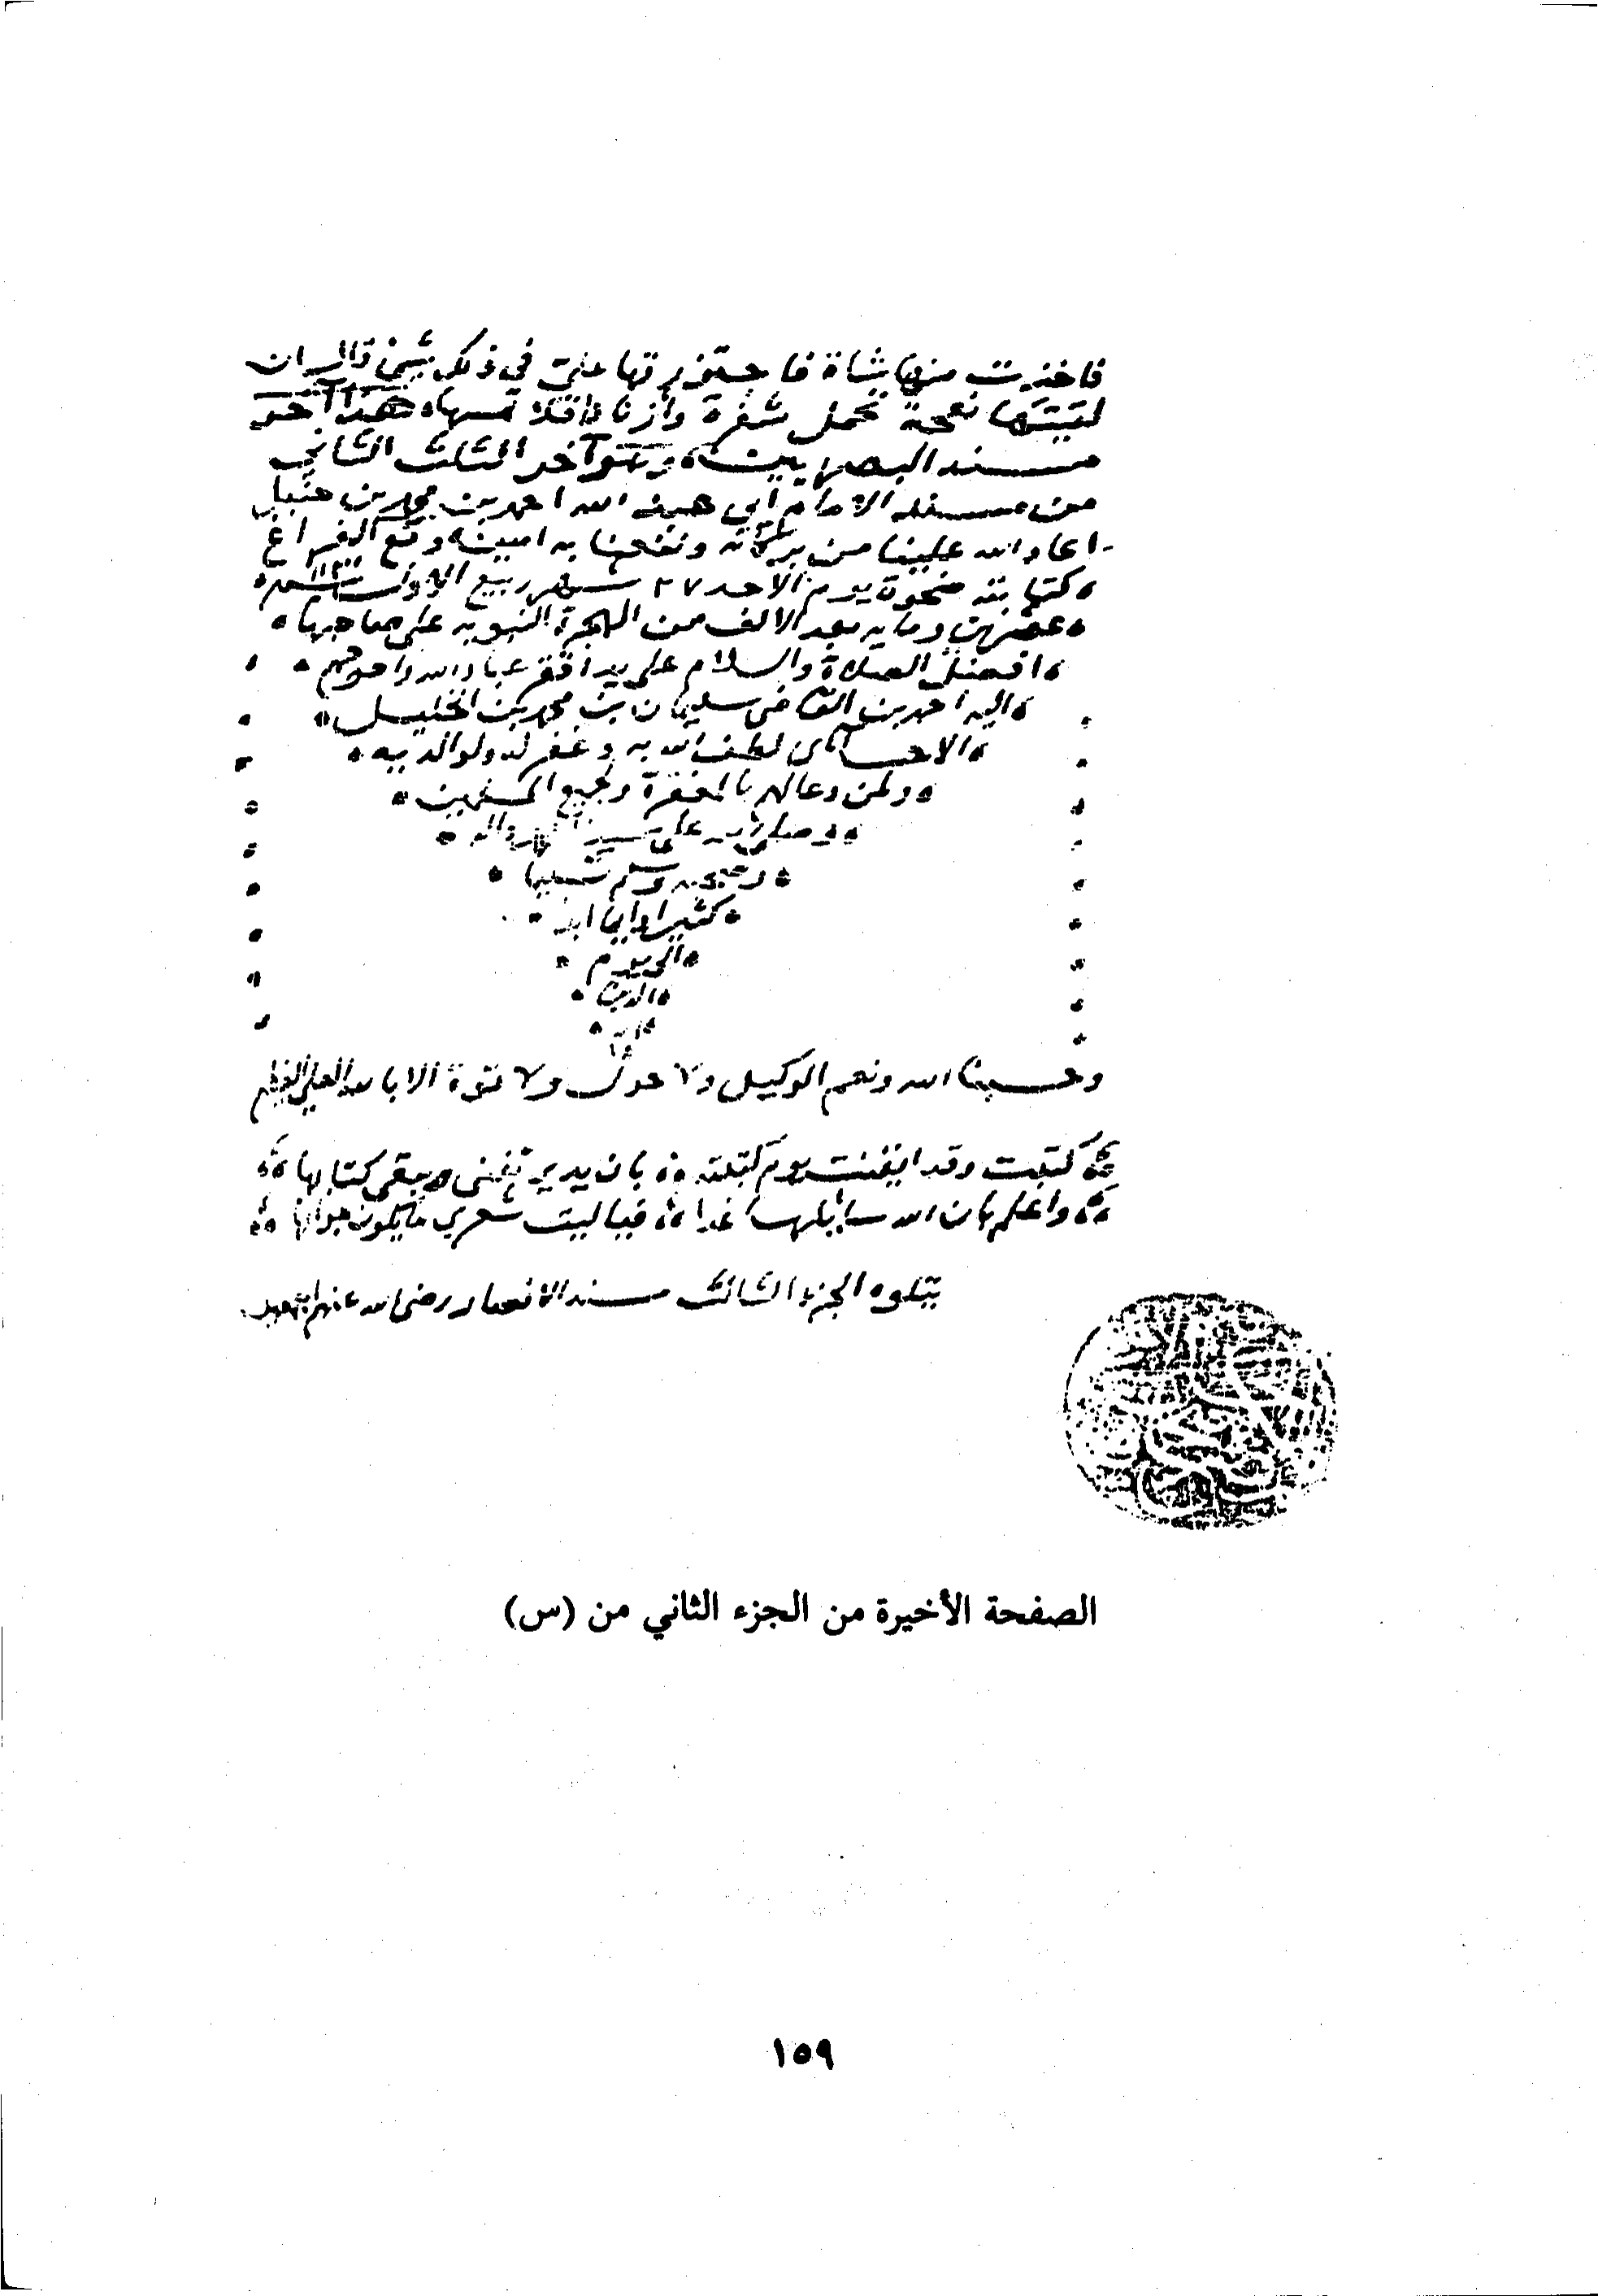 فاخذت منها شاة فاجتزرتها علي في ذلك شيئ قال ان
لقيتها نعجة تحمل شفرة وأزنادا فلا تمسها هذا آخر
مسند البصريين وهو آخر الثلث الثاني
من مسند الامام ابي عبد الله احمد بن محمد بن حنبل
اعاد الله علينا من بركاته ونفعنا به امين وقع الفراغ
كتابته ضحوة يوم الاحد ٢٧ شهر ربيع الاول
عشرين ومايه بعد الالف من الهجرة النبويه على صاحبها
افضل الصلاة والسلام على يد افقر عباد الله واحوجهم
اليه احمد بن القاضي سليمان بن محمد بن الخليل
الاحسائي لطف الله به وغفر له ولوالديه
ولمن دعا لهم بالمغفرة ولجميع المسلمين
وصلى الله على سيدنا محمد واله
وصحبه وسلم تسليما
كثيرا دايما ابدا
الى يوم
الدين
وحسبنا الله ونعم الوكيل ولا حول ولا قوة الا بالله العلي العظيم
كتبت وقد ايقنت يوم كتبته بان يدي تفنى ويبقى كتابها
واعلم بان الله سايلها غدا فياليت شعري ما يكون جوابها
يتلوه الجزء الثالث مسند الانصار رضي الله عنهم
الصفحة الأخيرة من الجزء الثاني من (س)
١٥٩